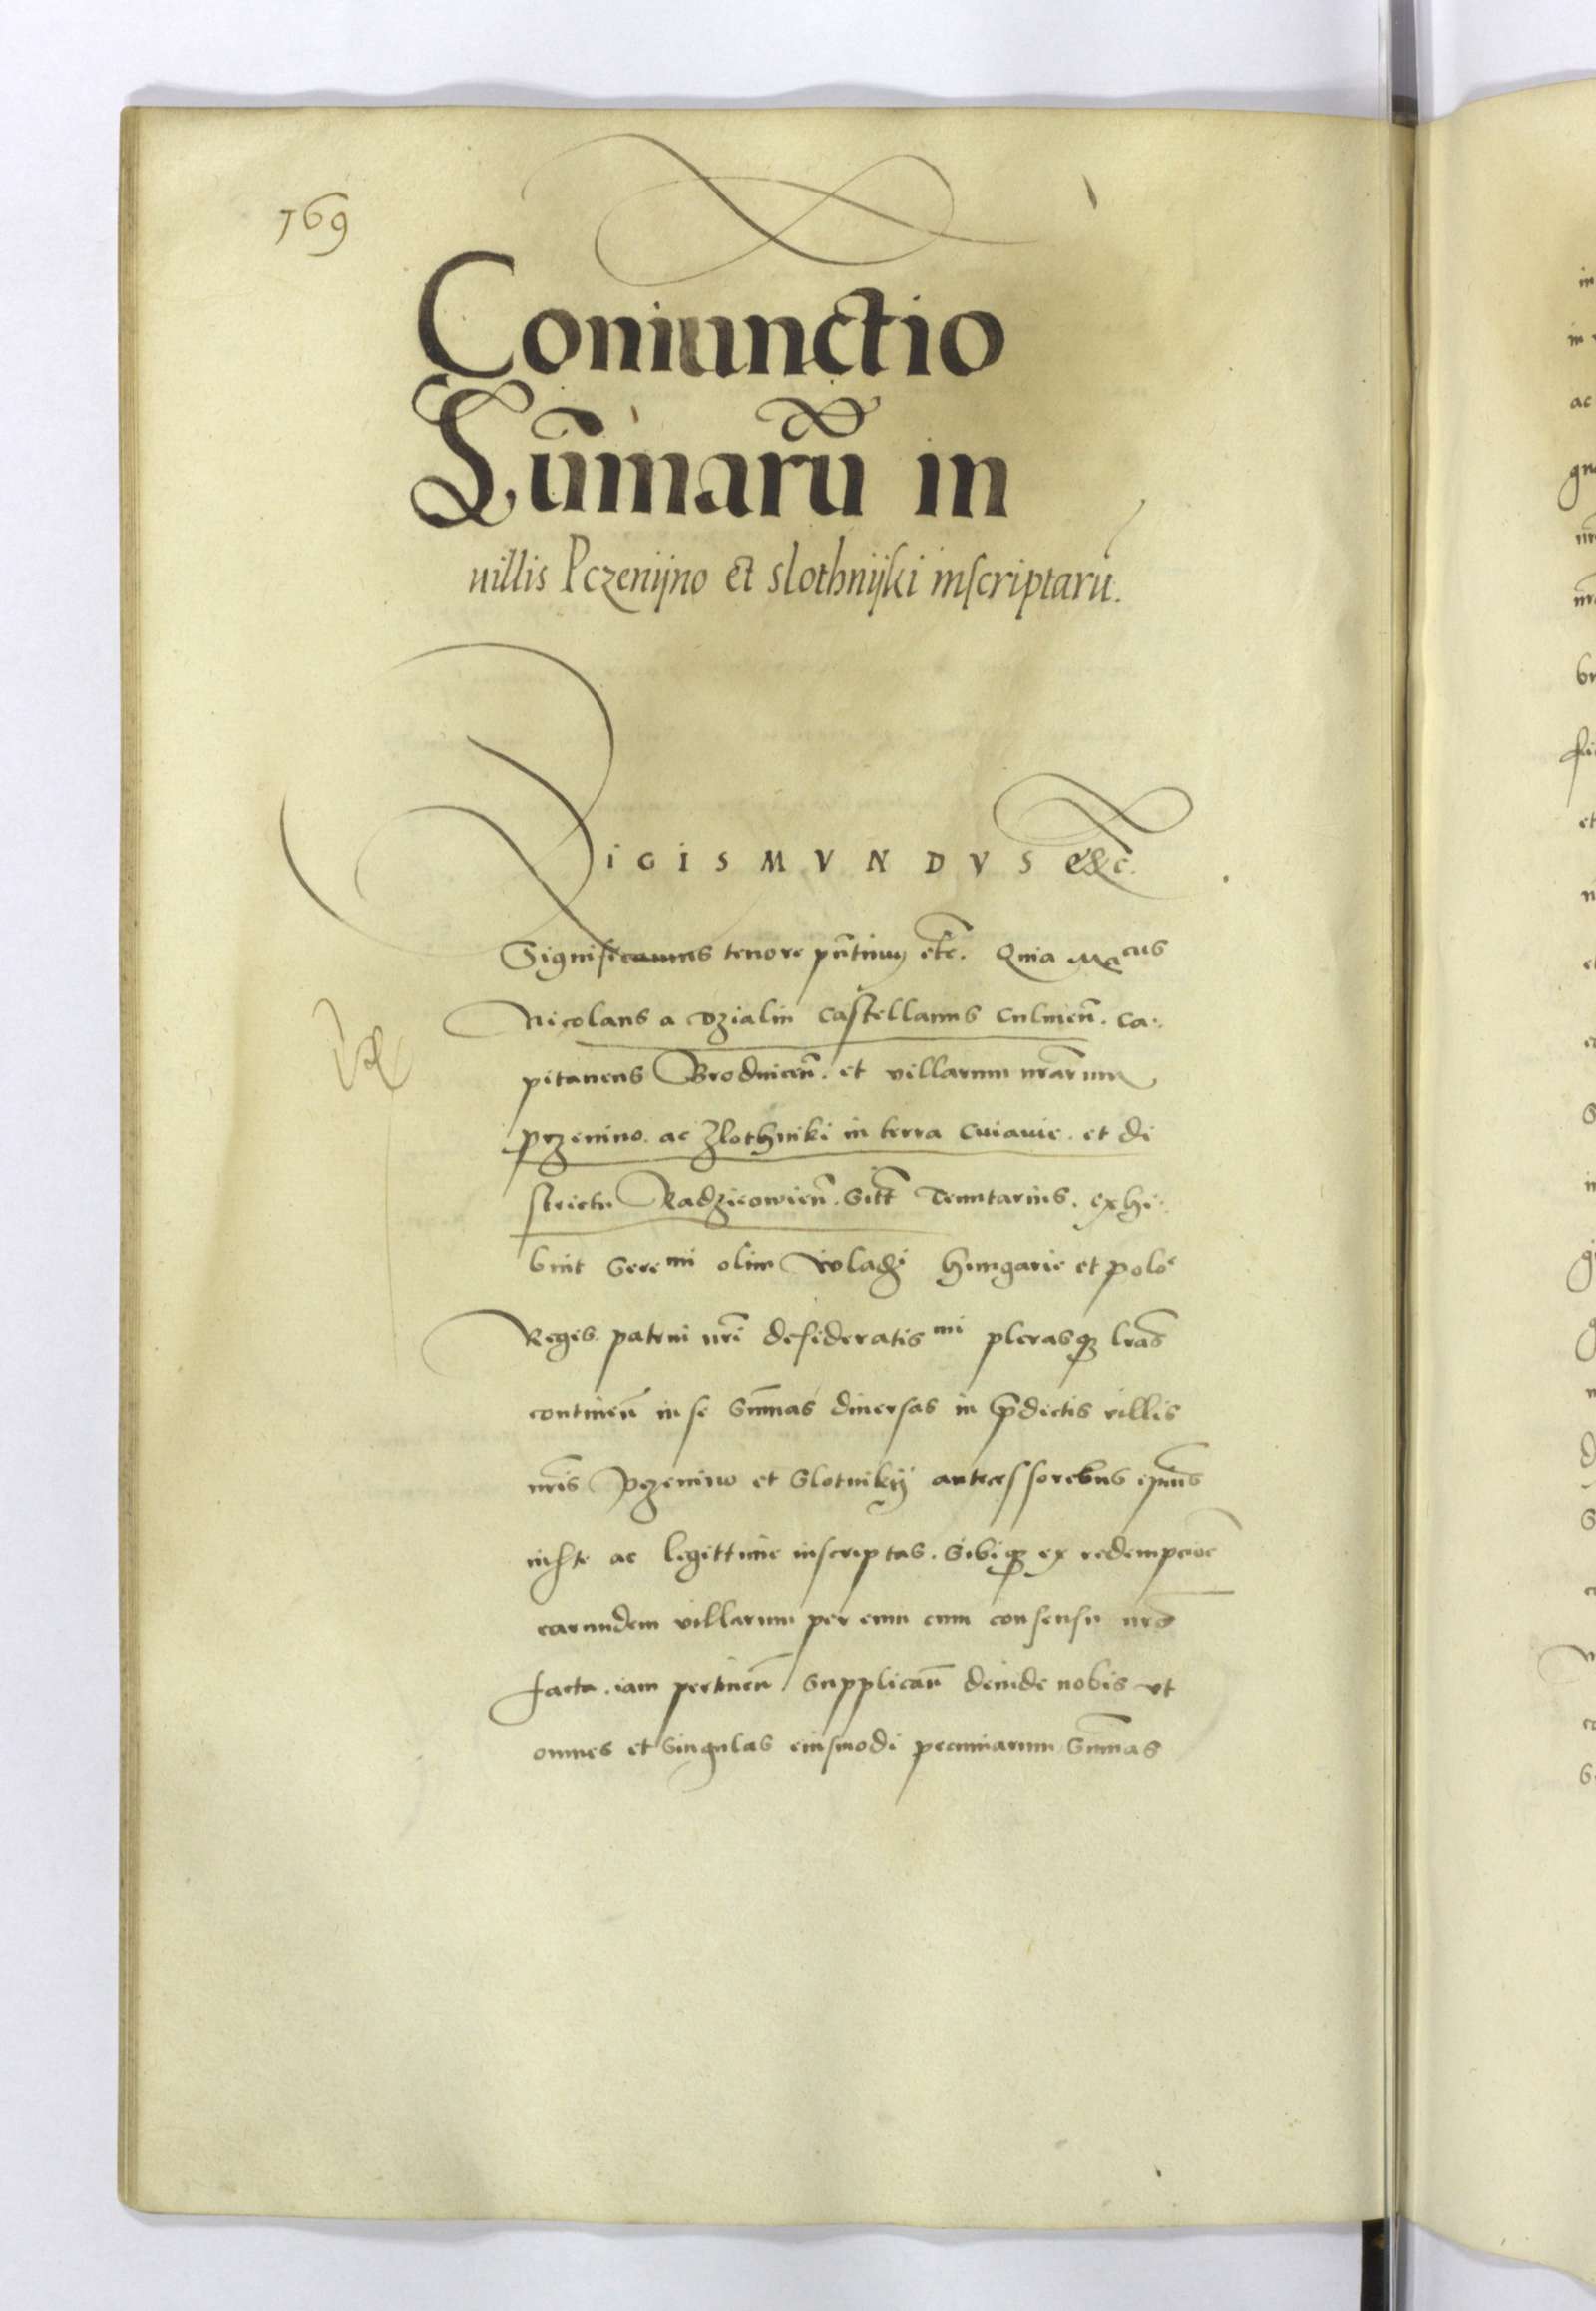 169
Coniunctio
Sūmarū in
uillis Pczenijno et slothnijki inscriptarū.
SIGISMVNDVS etc.
Significamus tenore pñtium etc. Quia Magcus
Nicolaus a Dzialin Castellanus Culmeñ. Ca:
pitaneus Brodniceñ. et villarum nrãrum
Pczenino. ac Zlothniki in terra Cuiavie. et di
strictu Radzieiowieñ. sitt̃ Tenutarius. exhi:
buit Seremi olim Wladi Hungarie et Polõe
Regis. patrui nrĩ desideratismi plerasq; lrãs
continen̄ in se sum̄as diuersas in p̄dictis villis
nrĩs Pczenino et Slotnikij antecessoribus ipsius
iuste ac legittime inscriptas. sibiq; ex redempcioē
earundem villarum per eum cum consensu nrõ
facta. iam pertinen̄ supplican̄ deinde nobis vt
omnes et singulas eiusmodi pecuniarum sum̄as